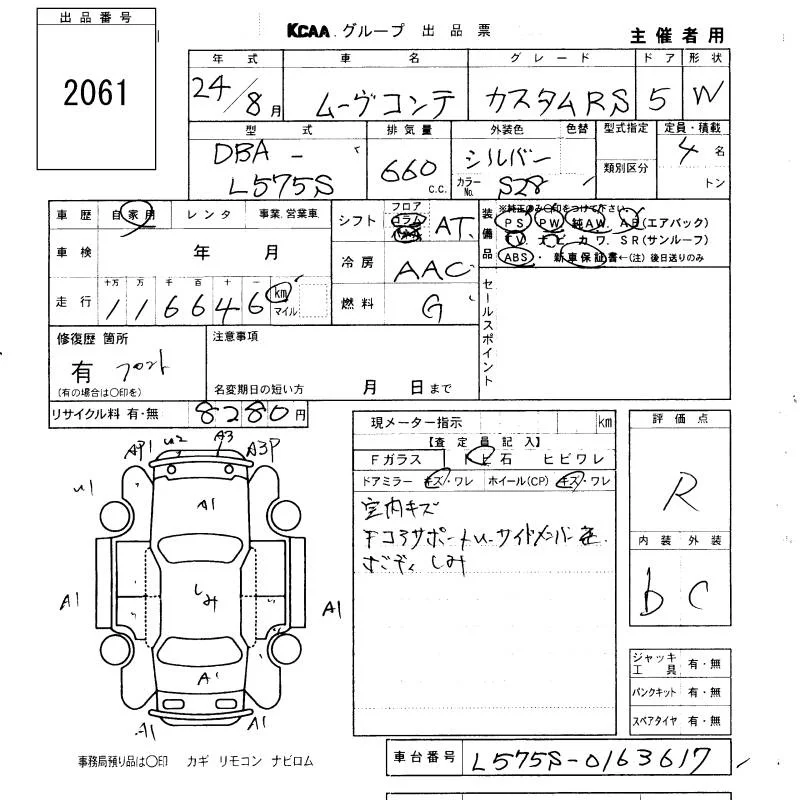 出品番号
2061
KCAA グループ 出品票
主催者用
年式 車名 グレード ドア 形状
24/8月 ムーヴコンテ カスタムRS 5 W
型式 排気量 外装色 色替 型式指定 定員・積載
類別区分
DBA- L575S 660 c.c. シルバー カラーNo. S28 4名
トン
車歴 自家用 レンタ 事業、営業車
車検 年 月
走行 十万 万 千 百 十 一
116646 km マイル
シフト フロア コラム AT
冷房 AAC
燃料 G
装備品
※純正のみ○印をつけて下さい。
PS PW 純AW. AB(エアバック)
TV. ナビ カワ. SR(サンルーフ)
ABS・新車保証書←(注)後日送りのみ
セールスポイント
修復歴 箇所
有 フロント
(有の場合は○印を)
注意事項
名変期日の短い方 月 日まで
リサイクル料 有・無 8280円
現メーター指示 km
【査定員記入】
Fガラス トビ石 ヒビワレ
ドアミラー キズ・ワレ ホイール(CP) キズ・ワレ
室内キズ
しみ
評価点
R
内装 外装
b C
ジャッキ工具 有・無
パンクキット 有・無
スペアタイヤ 有・無
AP1 U2 A3 A3P
U1
A1
A1 しみ A1
A1
A1 A1
事務局預り品は○印 カギ リモコン ナビロム
車台番号 L575S-0163617